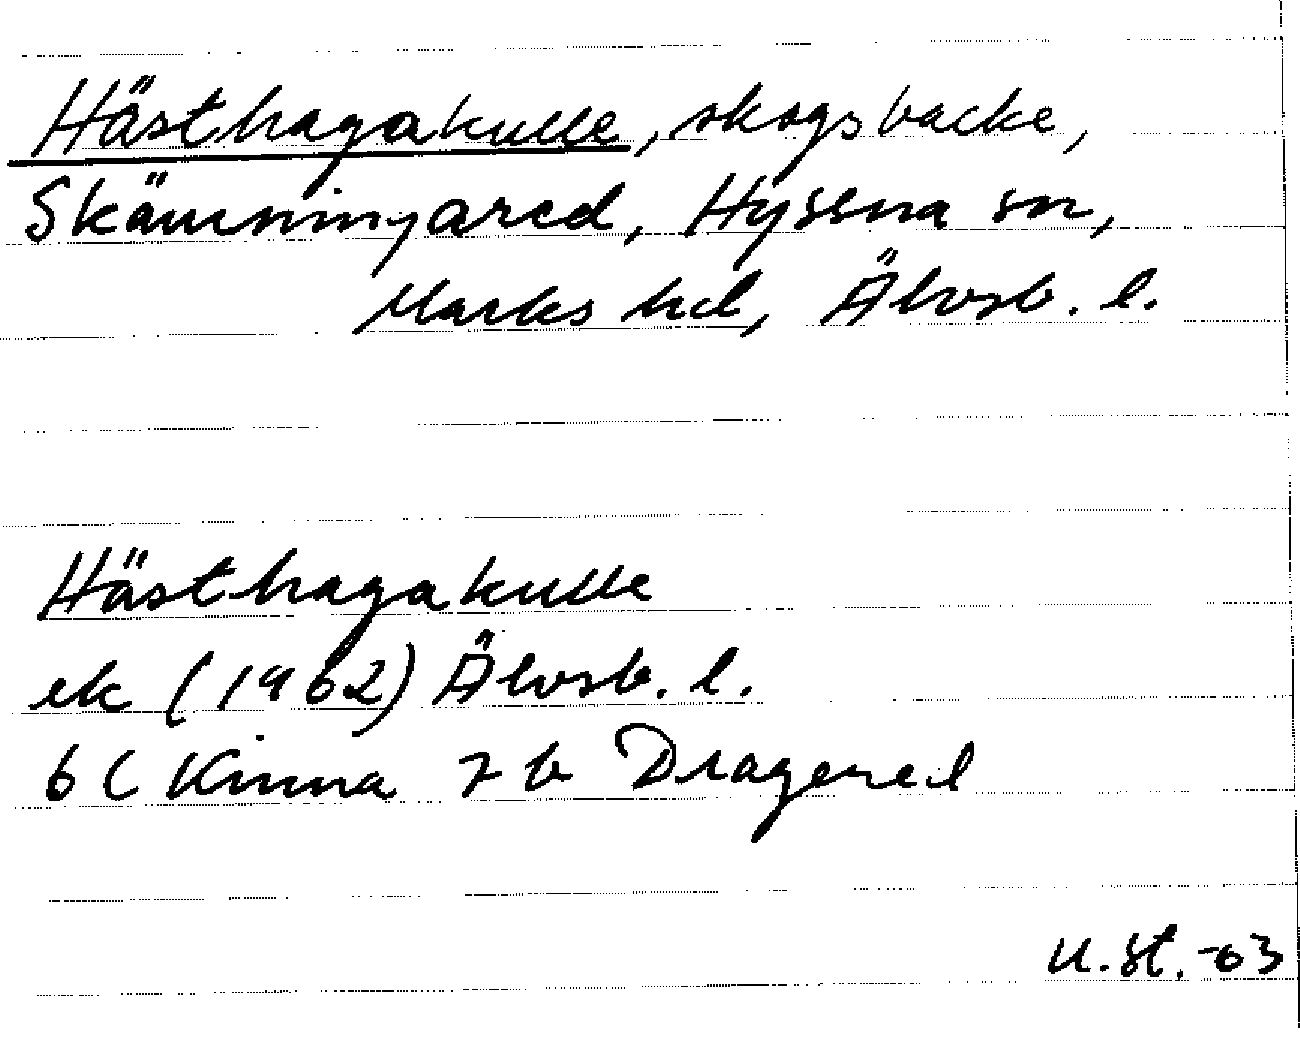 Hästhagakulle, skogsbacke,
Skämningared, Hyssna sn,
Marks hd, Älvsb. l.
Hästhagakulle
ek (1962) Älvsb. l.
6C Kinna 7b Dragered
U.St. -63